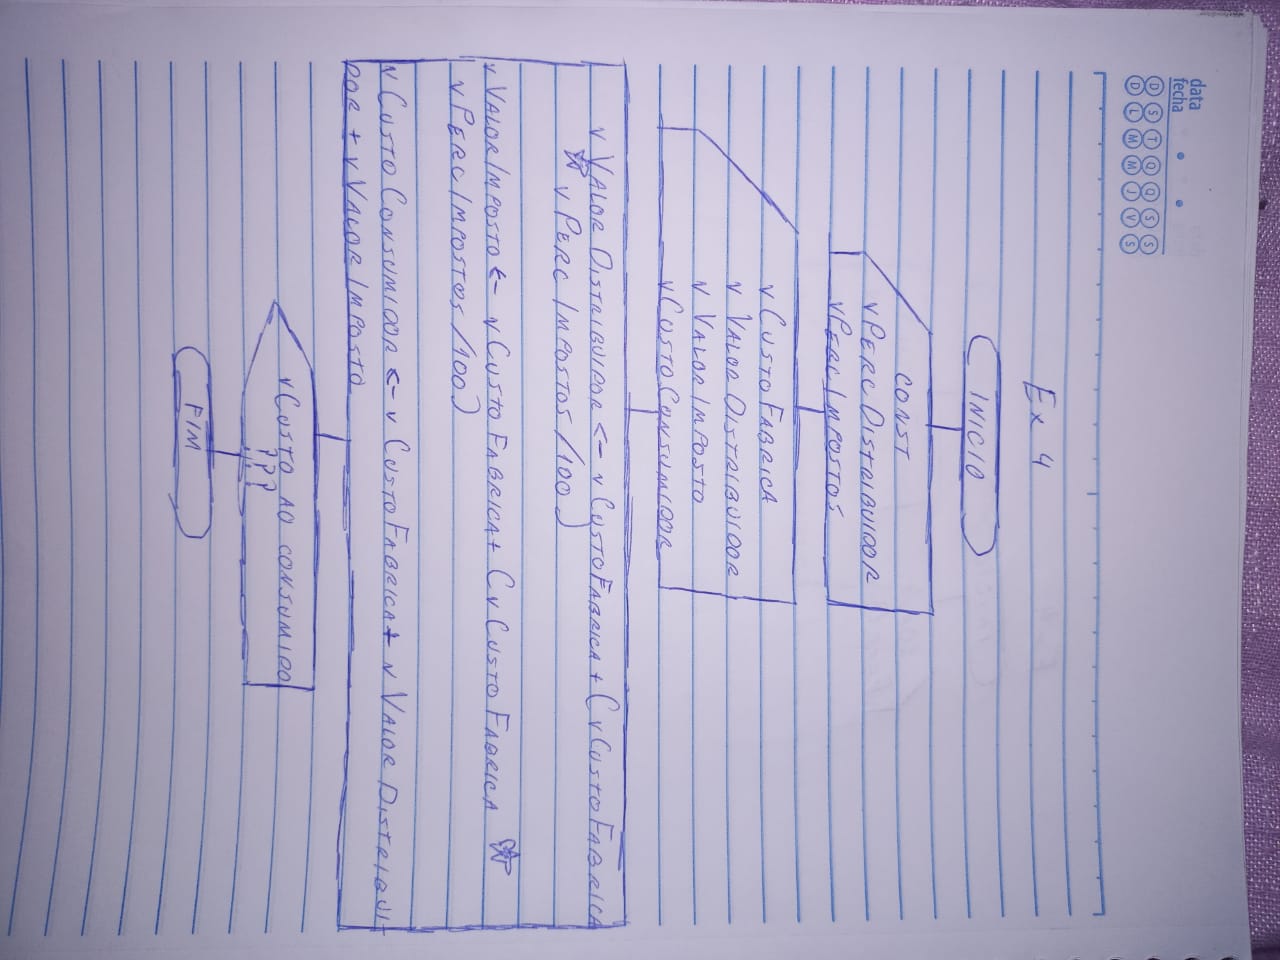 data
fecha
D S T Q Q S S
D L M M J V S
Ex 4
INICIO
CONST
vPERC DISTRIBUIDOR
vPERC IMPOSTOS
vCUSTO FABRICA
v VALOR DISTRIBUIDOR
v VALOR IMPOSTO
vCUSTO CONSUMIDOR
v VALOR DISTRIBUIDOR <- v CUSTO FABRICA + (vCUSTO FABRICA
* vPERC IMPOSTOS/100)
v VALOR IMPOSTO <- vCUSTO FABRICA + (vCUSTO FABRICA *
vPERC IMPOSTOS/100)
v CUSTO CONSUMIDOR <- v CUSTO FABRICA + v VALOR DISTRIBUI-
DOR + v VALOR IMPOSTO
vCUSTO AO CONSUMIDO
???
FIM